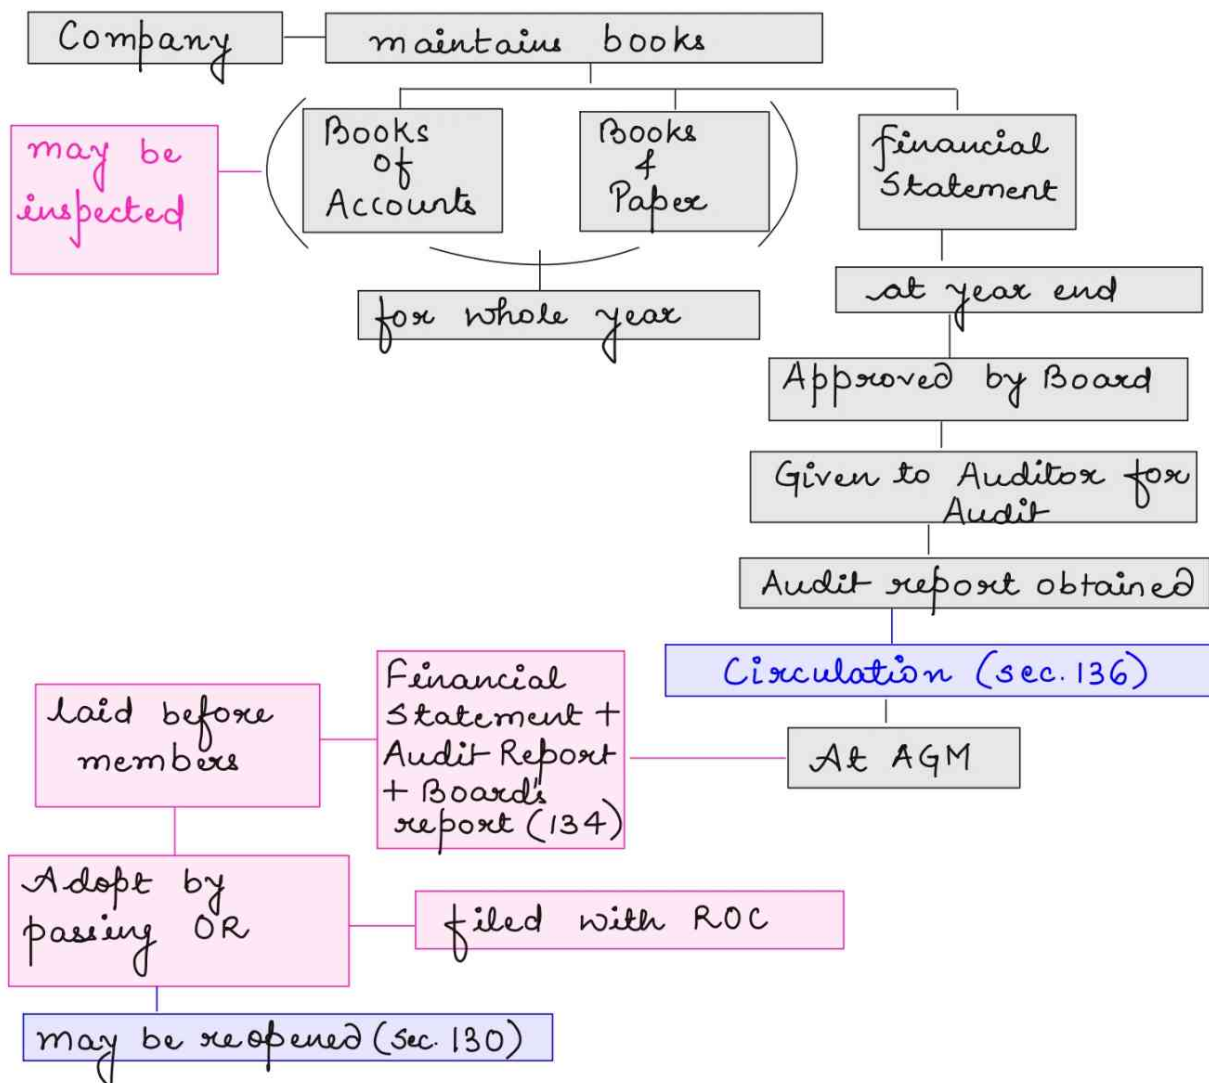 Company
maintains books
may be
inspected
Books
of
Accounts
Books
&
Paper
financial
Statement
for whole year
at year end
Approved by Board
Given to Auditor for
Audit
Audit report obtained
Circulation (sec. 136)
At AGM
Financial
Statement +
Audit Report
+ Board's
report (134)
laid before
members
Adopt by
passing OR
filed with ROC
may be reopened (Sec. 130)